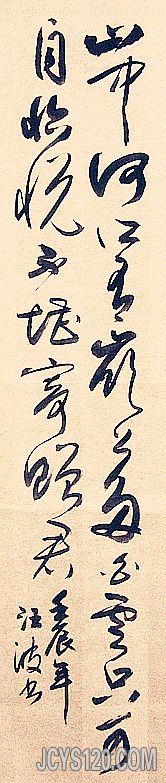 山中何所有岭上多白云只可
自怡悦不堪寄赠君
壬辰年
汪波书
JCYS120.COM